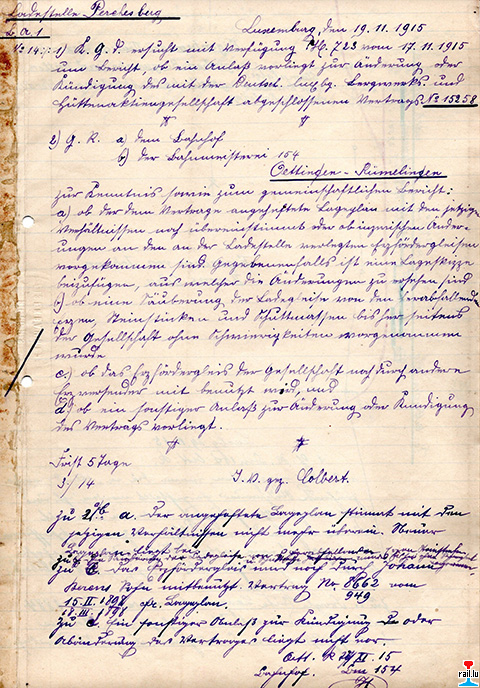 Ladestelle Perchesberg
L a 1
Luxemburg, den 19.11.1915
No 14: 1) K.G.D. ersucht mit Verfügung No. 723 vom 17.11.1915
um Bericht, ob ein Anlaß vorliegt zur Änderung oder
Kündigung des mit der Deutsch. luxbg. Bergwerks- und
Hüttenaktiengesellschaft abgeschlossenen Vertrags No 15258
2) G. R. a) dem Bahnhof
b) der Bahnmeisterei 154
Oettingen-Rümelingen
zur Kenntnis sowie zum gemeinschaftlichen Bericht:
a) ob der dem Vertrage angeheftete Lageplan mit den jetzigen
Verhältnissen noch übereinstimmt oder ob inzwischen Änder-
ungen an den an der Ladestelle verlegten Erzfördergleisen
vorgekommen sind. Gegebenenfalls ist eine Lageskizze
beizufügen, aus welcher die Änderungen zu ersehen sind
b) ob eine Säuberung der Ladegleise von den herabfallenden
Erzen, Steinstücken und Schuttmassen bisher seitens
der Gesellschaft ohne Schwierigkeiten vorgenommen
wurde
c.) ob das Erzfördergleis der Gesellschaft noch durch andere
Erzversender mit benutzt wird, und
d) ob ein sonstiger Anlaß zur Änderung oder Kündigung
des Vertrags vorliegt.
Frist 5 Tage
3/14
I. V. gez. Colbert.
zu 2/b a. Der angeheftete Lageplan stimmt mit den
jetzigen Verhältnissen nicht mehr überein. Neuer
Lageplan liegt bei
zu c Das Erzfördergleis wird noch durch Johann
Berens Sohn mitbenützt. Vertrag No 8662 vom
949
15.II.1898
18.III.1898 Lageplan.
zu d Ein sonstiger Anlaß zur Kündigung oder
Abänderung des Vertrages liegt nicht vor.
Oett. R XI. 15
Bahnhof. Bm 154
rail.lu